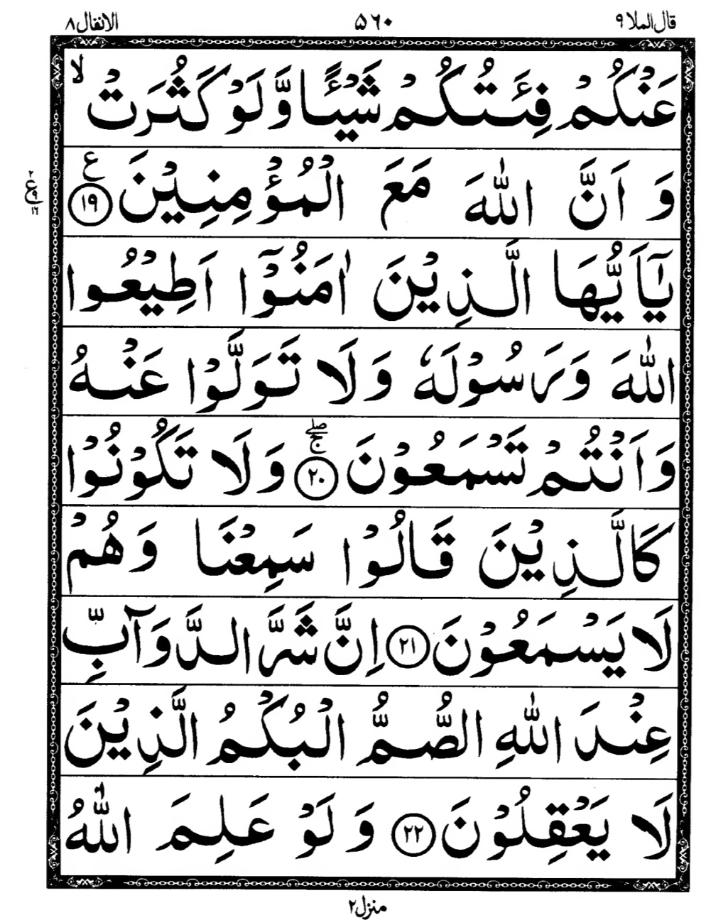 قال الملا ۹ ۵۶۰ الانفال ۸
عَنْكُمْ فِئَتُكُمْ شَيْـًٔا وَّلَوْ كَثُرَتْ ۙ
وَ اَنَّ اللّٰهَ مَعَ الْمُؤْمِنِيْنَ ﴿۱۹﴾ ع
يٰۤاَيُّهَا الَّذِيْنَ اٰمَنُوْۤا اَطِيْعُوا
اللّٰهَ وَرَسُوْلَهٗ وَلَا تَوَلَّوْا عَنْهُ
وَاَنْتُمْ تَسْمَعُوْنَ ﴿۲۰﴾ۚۖ وَلَا تَكُوْنُوْا
كَالَّذِيْنَ قَالُوْا سَمِعْنَا وَهُمْ
لَا يَسْمَعُوْنَ ﴿۲۱﴾ اِنَّ شَرَّ الدَّوَآبِّ
عِنْدَ اللّٰهِ الصُّمُّ الْبُكْمُ الَّذِيْنَ
لَا يَعْقِلُوْنَ ﴿۲۲﴾ وَلَوْ عَلِمَ اللّٰهُ
منزل ۲